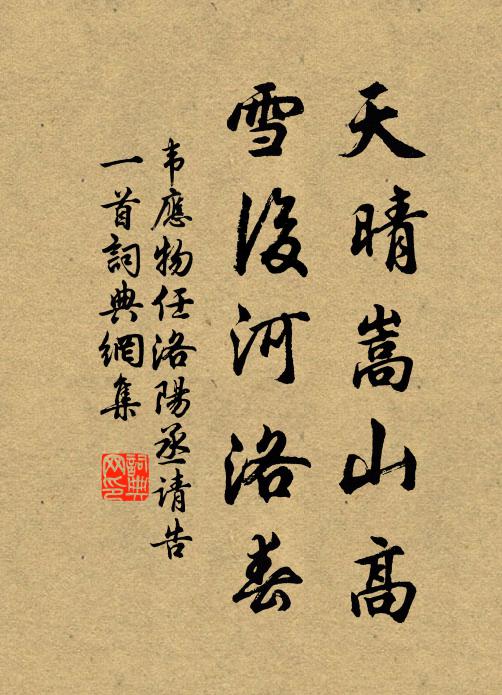 天晴嵩山高
雪後河洛春
韦應物任洛陽丞请告
一首詞典網集
詞典
网印